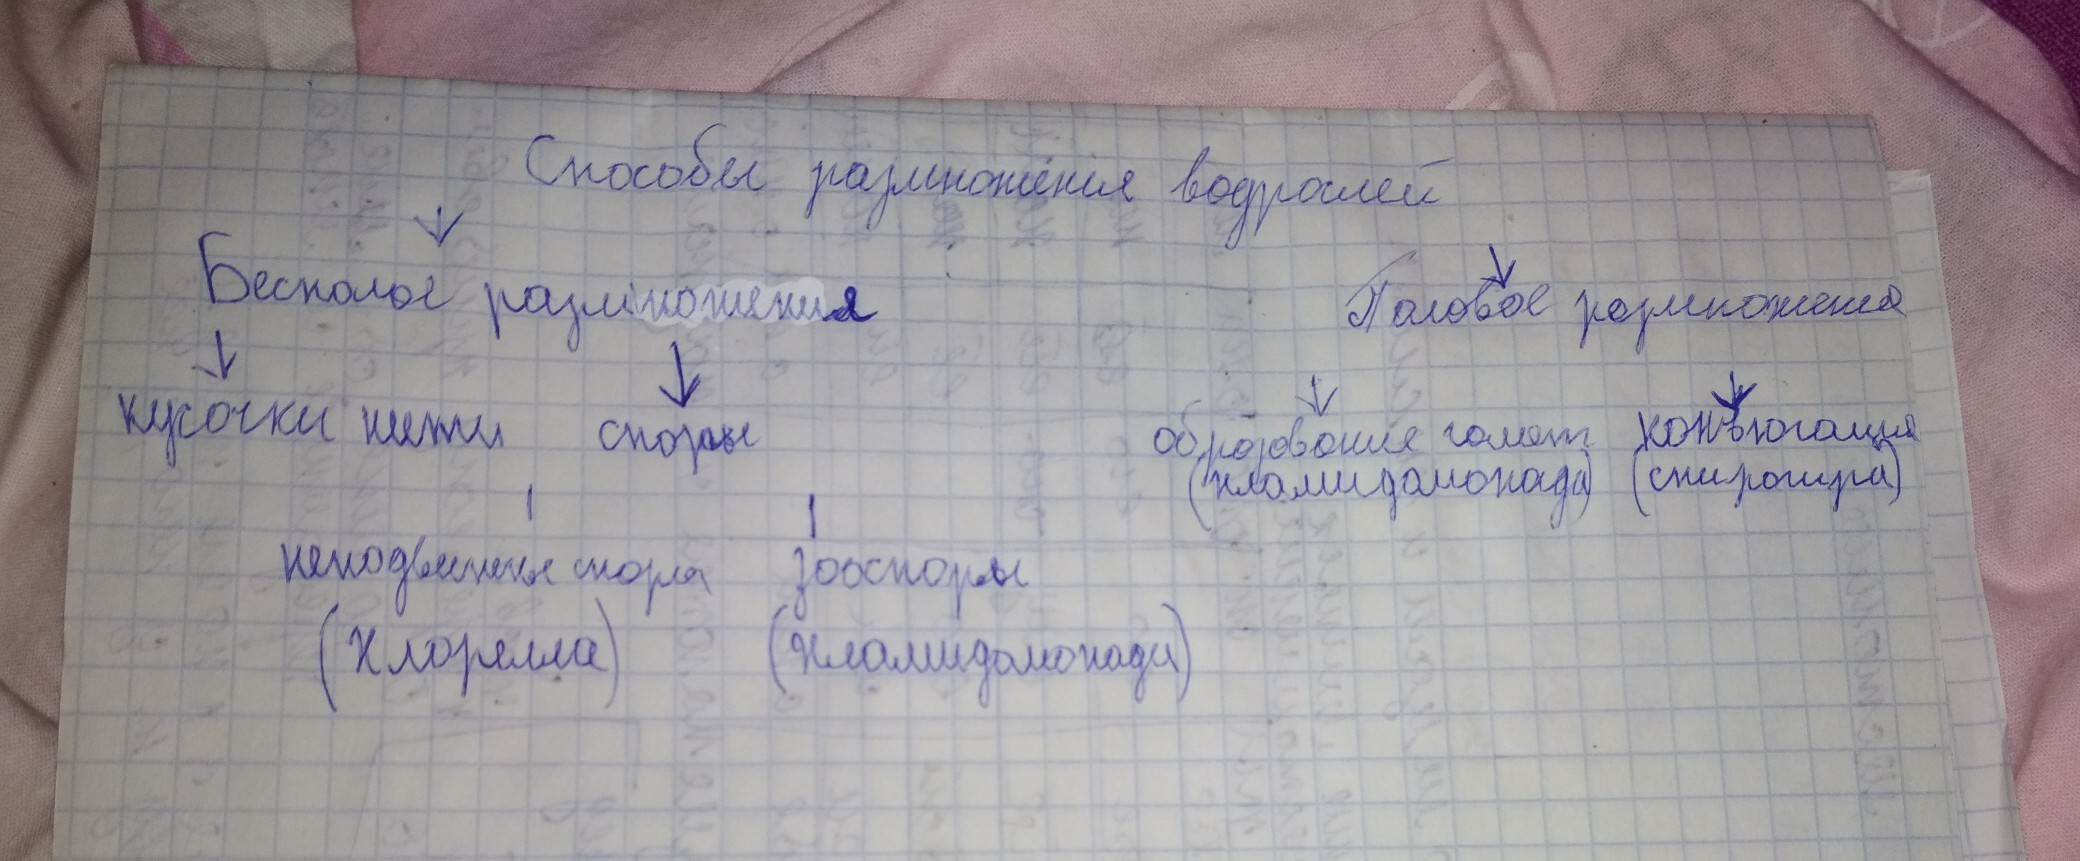 Способы размножения водрослей
Бесполое размножения Половое размножения
кусочки нити споры образование гамет конъюгация
(хламидомонада) (спирогира)
неподвижные спора зооспоры
(Хлорелла) (хламидомонади)